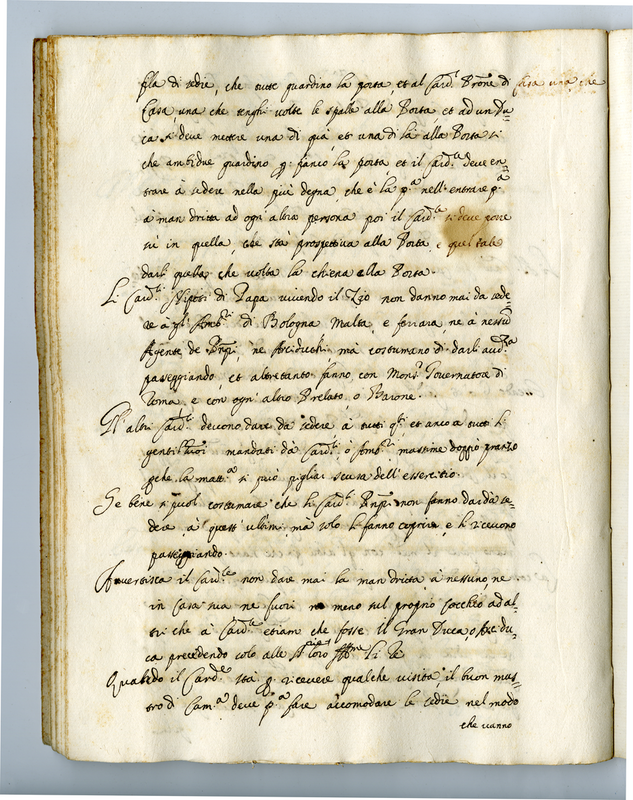 fila di sedie, che tutte guardino la porta et al Card.l Prõne di
Casa una che tenghi volte le spalle alla Porta, et ad un Du=
ca si deve mettere una di quà, et una di là alla Porta si
che ambidue guardino p. fianco la porta, et il Card.le deve en=
trare à sedere nella più degna, che è la p.a nell'entrare p.a
à man dritta ad ogni altra persona poi il Card.le si deve porre
sù in quella, che stà prospettiva alla Porta, e quel tale
darli quella, che volta la schiena alla Porta.
Li Card.li Nipoti di Papa vivendo il Zio non danno mai da sede=
re à gl'Amb.ri di Bologna Malta, e ferrara, ne à nessũ
Agente de Prñpi, ne Arciduchi, mà costumano di darli aud.za
passeggiando, et altretanto fanno con Mons.r Governatore di
Roma, e con ogni altro Prelato, ò Barone.
Gl'altri Card.li devono dare da sedere à tutti q.ti et anco a tutti li
gentil'huoi mandati dà Card.li ò Amb.ri massime doppò pranzo
p̃che la matt.a si può pigliar scusa dell'essercitio.
Se bene si puol costumare che li Card.li Prñpi non fanno dar dà se=
dere, à questi ultimi, ma solo li fanno coprire, e li ricevono
passeggiando.
Avvertisca il Card.le non dare mai la man dritta à nessuno, ne
in Casa sua ne fuori ne meno sul proprio Cocchio ad al=
tri che à Card.li etiam che fosse il Gran Duca, o Arcidu=
ca precedendo solo alle loro
Quando il Card.le stà p. ricevere qualche visita il buon mas=
tro di Cam.a deve p.a fare accomodare le sedie nel modo
che vanno
Casa una, che